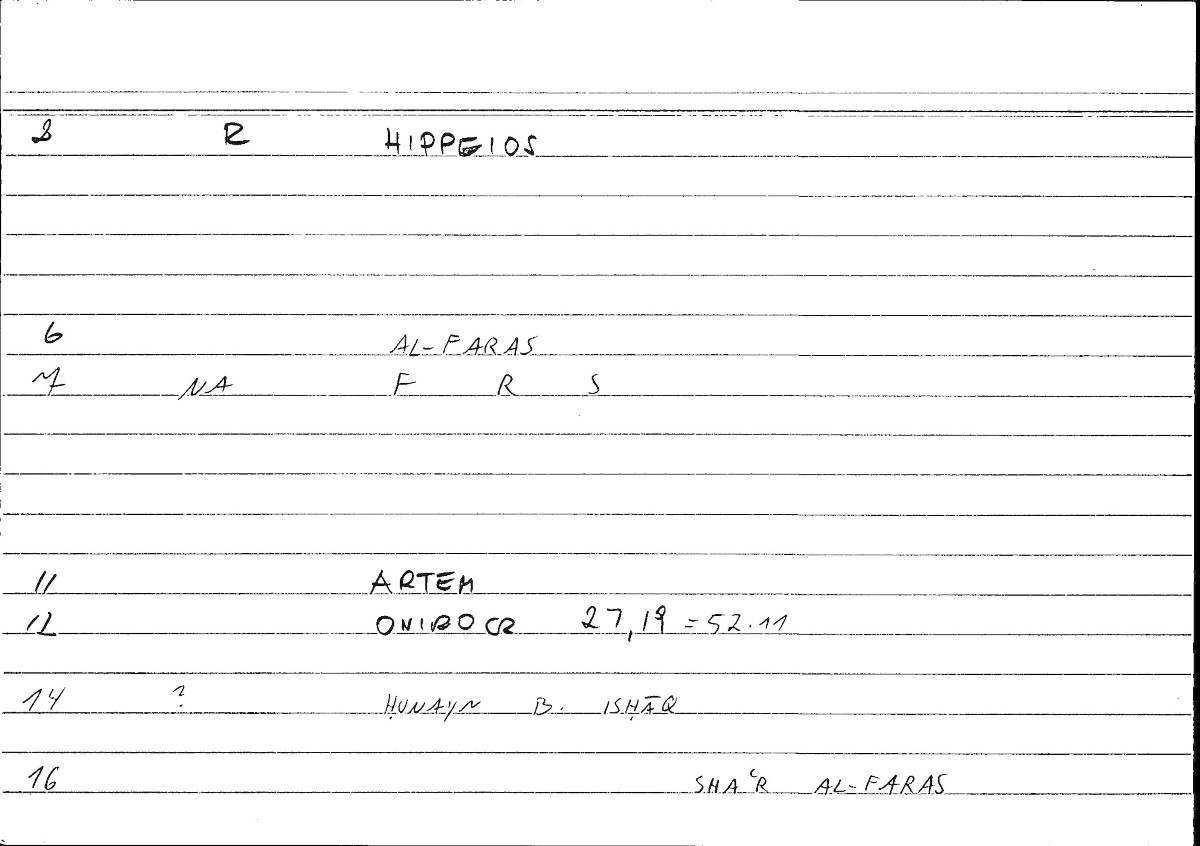 2 R HIPPEIOS
6 AL-FARAS
7 NA F R S
11 ARTEM
12 ONIROCR 27,19 = 52.11
14 ? ḤUNAYN B. ISḤĀQ
16 SHAʿR AL-FARAS